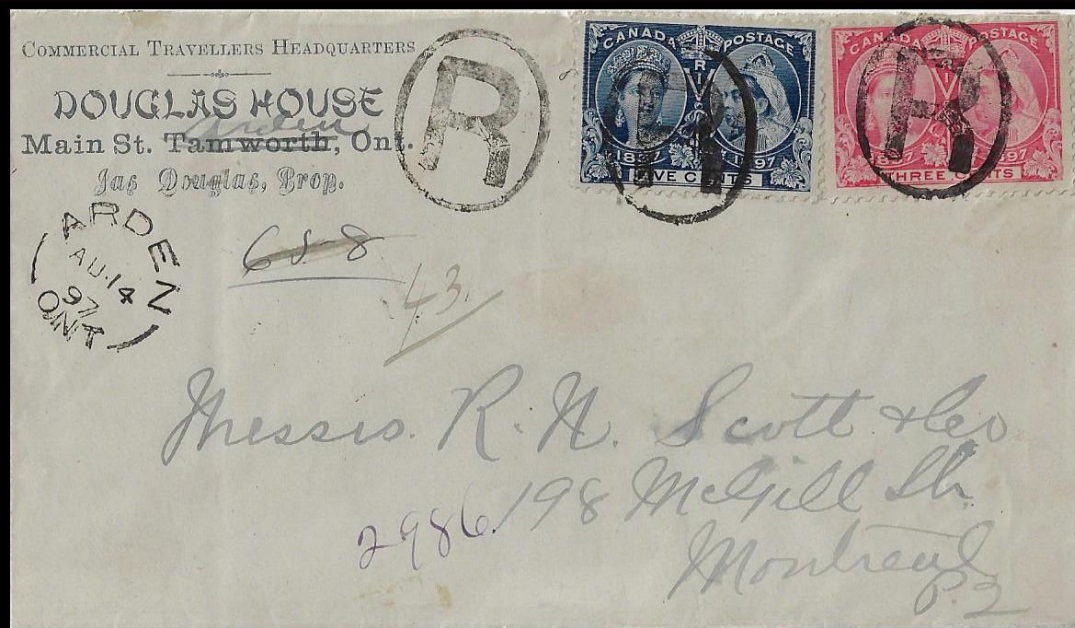 COMMERCIAL TRAVELLERS HEADQUARTERS
DOUGLAS HOUSE
Arden
Main St. Tamworth, Ont.
Jas Douglas, Prop.
R
CANADA POSTAGE
1897 1897
FIVE CENTS
R
CANADA POSTAGE
1897 1897
THREE CENTS
R
ARDEN
AU 14
97
ONT
43
Messrs. R. N. Scott & Co
198 McGill St.
2986
Montreal
P.Q